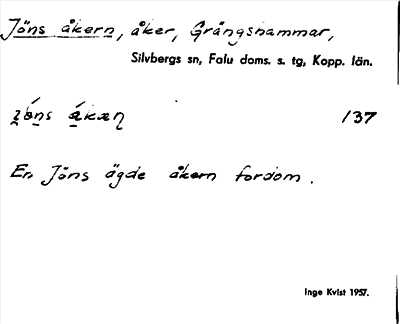 Jöns åkern, åker, Grängshammar,
Silvbergs sn, Falu doms. s. tg, Kopp. län.
137
En Jöns ägde åkern fordom.
Inge Kvist 1957.